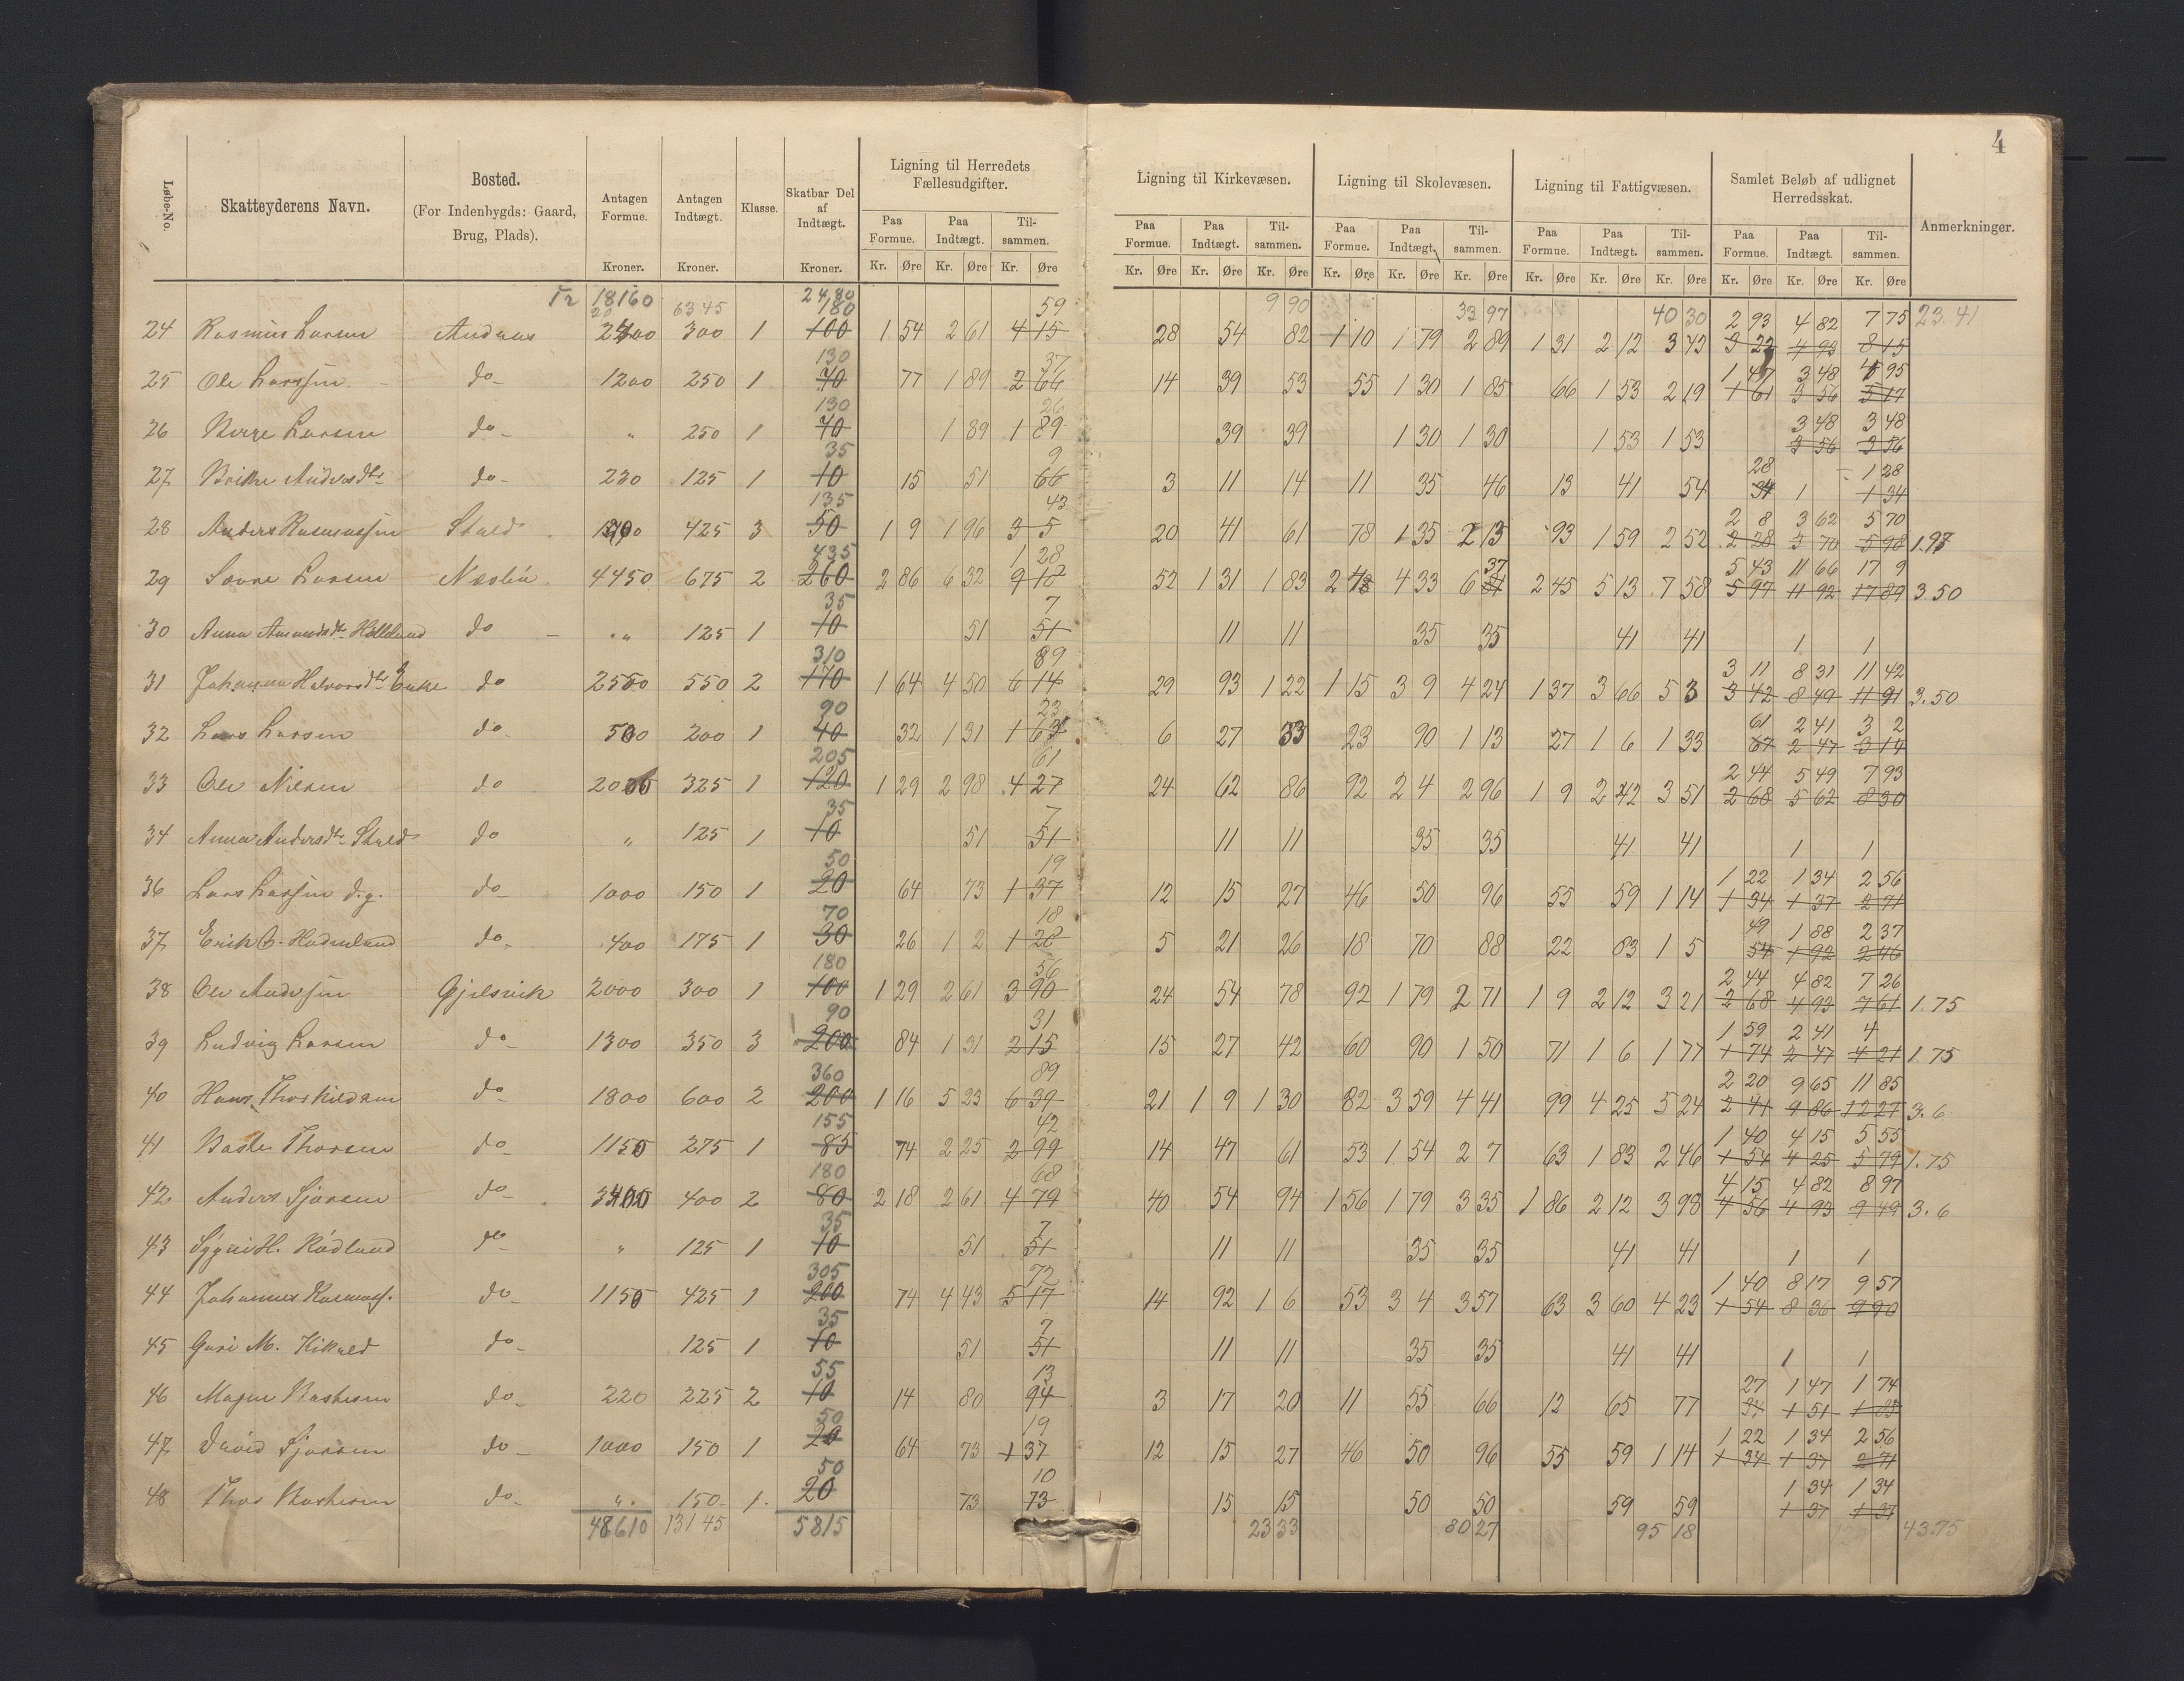 4
Løbe-No. Skatteyderens Navn. Bosted. (For Indenbygds: Gaard, Brug, Plads). Antagen Formue. Antagen Indtægt. Klasse. Skatbar Del af Indtægt. Ligning til Herredets Fællesudgifter. Ligning til Kirkevæsen. Ligning til Skolevæsen. Ligning til Fattigvæsen. Samlet Beløb af udlignet Herredsskat. Anmerkninger.
Paa Formue. Paa Indtægt. Til- sammen. Paa Formue. Paa Indtægt. Til- sammen. Paa Formue. Paa Indtægt. Til- sammen. Paa Formue. Paa Indtægt. Til- sammen. Paa Formue. Paa Indtægt. Til- sammen.
Kroner. Kroner. Kroner. Kr. Øre Kr. Øre Kr. Øre Kr. Øre Kr. Øre Kr. Øre Kr. Øre Kr. Øre Kr. Øre Kr. Øre Kr. Øre Kr. Øre Kr. Øre Kr. Øre Kr. Øre
18160 6345 2480 9 90 33 97 40 30 23.41
180 59 2 93 4 82 7 75
24 Rasmus Larsen 300 1 100 1 54 2 61 4 15 28 54 82 1 10 1 79 2 89 1 31 2 12 3 43 3 22 4 93 8 15
130 37 1 47 3 48 4 95
25 Ole Larssen do 1200 250 1 70 77 1 89 2 66 14 39 53 55 1 30 1 85 66 1 53 2 19 1 61 3 56 5 17
130 26 3 48 3 48
26 Larsen do " 250 1 70 1 89 1 89 39 39 1 30 1 30 1 53 1 53 3 56 3 56
35 9 28 1 28
27 do 230 125 1 10 15 51 66 3 11 14 11 35 46 13 41 54 34 1 1 34
135 43 2 8 3 62 5 70
28 Anders Rasmussen Stuld 425 3 50 1 9 1 96 3 5 20 41 61 78 1 35 2 13 93 1 59 2 52 2 28 3 70 5 98 1.97
435 1 28 37 5 43 11 66 17 9
29 Larsen 4450 675 2 260 2 86 6 32 9 18 52 1 31 1 83 2 43 4 33 6 81 2 45 5 13 7 58 5 97 11 92 17 89 3.50
35 7
30 Anna do " 125 1 10 51 51 11 11 35 35 41 41 1 1
310 89 3 11 8 31 11 42
31 Johanna Halvorsdtr Enke do 2550 550 2 170 1 64 4 50 6 14 29 93 1 22 1 15 3 9 4 24 1 37 3 66 5 3 3 42 8 49 11 91 3.50
90 23 61 2 41 3 2
32 Lars Larsen do 500 200 1 40 32 1 31 1 63 6 27 33 23 90 1 13 27 1 6 1 33 67 2 47 3 14
205 61 2 44 5 49 7 93
33 Ole Nilsen do 2000 325 1 120 1 29 2 98 4 27 24 62 86 92 2 4 2 96 1 9 2 42 3 51 2 68 5 62 8 30
35 7
34 Anna Andersdtr Stuld do " 125 1 10 51 51 11 11 35 35 41 41 1 1
50 19 1 22 1 34 2 56
36 Lars Larssen d.y. do 1000 150 1 20 64 73 1 37 12 15 27 46 50 96 55 59 1 14 1 34 1 37 2 71
70 18 49 1 88 2 37
37 Erik do 400 175 1 30 26 1 2 1 28 5 21 26 18 70 88 22 83 1 5 54 1 92 2 46
180 56 2 44 4 82 7 26
38 Ole Gjelsvik 2000 300 1 100 1 29 2 61 3 90 24 54 78 92 1 79 2 71 1 9 2 12 3 21 2 68 4 93 7 61 1.75
90 31 1 59 2 41 4
39 Ludvig Larsen do 1300 350 3 200 84 1 31 2 15 15 27 42 60 90 1 50 71 1 6 1 77 1 74 2 47 4 21 1.75
360 89 2 20 9 65 11 85
40 Hans Thorkildsen do 1800 600 2 200 1 16 5 23 6 39 21 1 9 1 30 82 3 59 4 41 99 4 25 5 24 2 41 9 86 12 27 3.6
155 42 1 40 4 15 5 55
41 Thorsen do 1150 275 1 85 74 2 25 2 99 14 47 61 53 1 54 2 7 63 1 83 2 46 1 54 4 25 5 79 1.75
180 68 4 15 4 82 8 97
42 Anders Sjursen do 3400 400 2 80 2 18 2 61 4 79 40 54 94 1 56 1 79 3 35 1 86 2 12 3 98 4 56 4 93 9 49 3.6
35 7
43 H. Rødland do " 125 1 10 51 51 11 11 35 35 41 41 1 1
305 72 1 40 8 17 9 57
44 Johannes Rasmuss. do 1150 425 1 200 74 4 43 5 17 14 92 1 6 53 3 4 3 57 63 3 60 4 23 1 54 8 36 9 90
35 7
45 Guri M. do 125 1 10 51 51 11 11 35 35 41 41 1 1
55 13 27 1 47 1 74
46 do 220 225 2 10 14 80 94 3 17 20 11 55 66 12 65 77 34 1 51 1 85
50 19 1 22 1 34 2 56
47 David Sjursen do 1000 150 1 20 64 73 1 37 12 15 27 46 50 96 55 59 1 14 1 34 1 37 2 71
50 10 1 34 1 34
48 Thor do " 150 1 20 73 73 15 15 50 50 59 59 1 37 1 37
48610 13145 5815 23 33 80 27 95 18 43.75